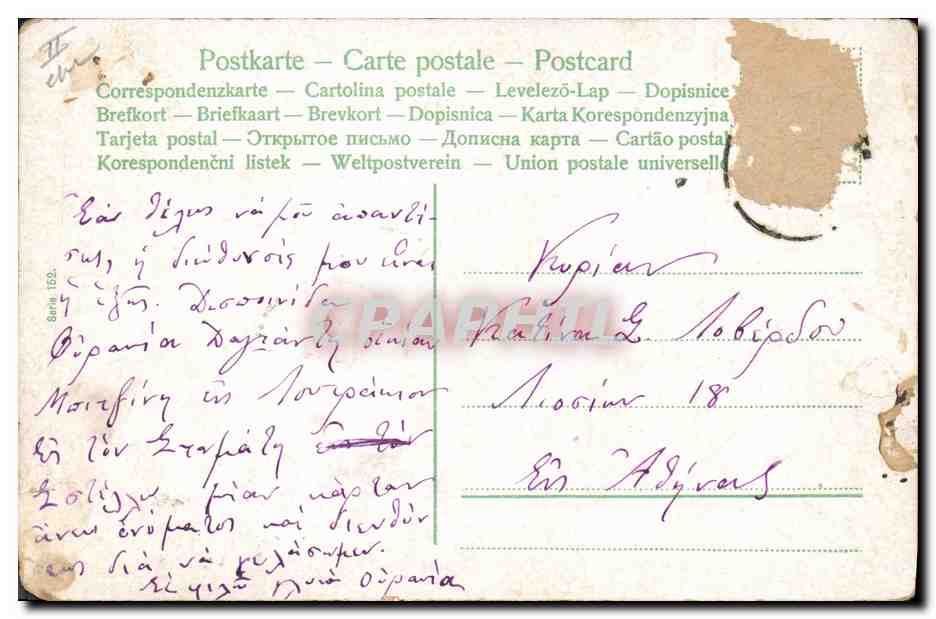 Postkarte – Carte postale – Postcard
Correspondenzkarte — Cartolina postale — Levelező-Lap — Dopisnice
Brefkort — Briefkaart — Brevkort — Dopisnica — Karta Korespondenzyjna
Tarjeta postal — Открытое письмо — Дописна карта — Cartão postal
Korespondenčni listek — Weltpostverein — Union postale universelle
Serie 152.
Ἐὰν θέλῃς νά μοῦ ἀπαντή-
σῃς, ἡ διεύθυνσίς μου εἶναι
ἡ ἑξῆς. Δεσποινίδα
Οὐρανία οἰκίαν
εἰς Λουτράκιον
Εἰς τὸν Σταμάτη
Ἔστειλλα μίαν κάρταν
ἄνευ ὀνόματος καὶ διευθύν
σεως διὰ νὰ γελάσωμεν.
Σὲ φιλῶ γλυκὰ Οὐρανία
Κυρίαν
Κατίναν Σ. Λοβέρδου
Λιοσίων 18
Εἰς Ἀθήνας
CPAPHIL